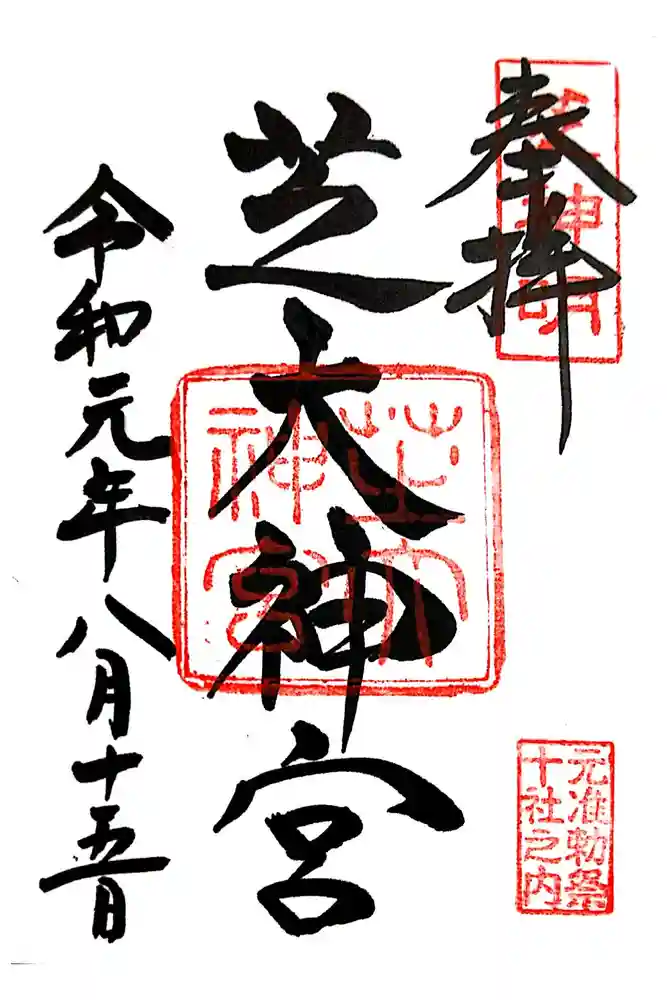 奉拝
芝神明
芝大神宮
芝大
神宮
令和元年八月十五日
元准勅祭
十社之内